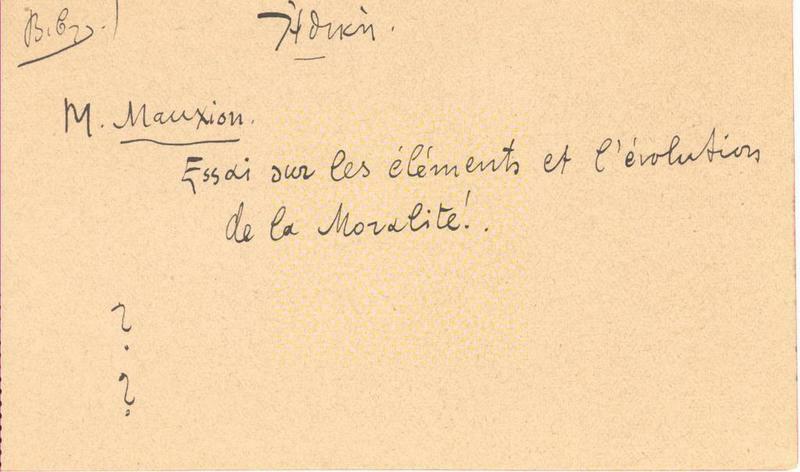 Βιβλ.
Ἠθική.
M. Mauxion.
Essai sur les éléments et l'évolution
de la Moralité!.
?
?